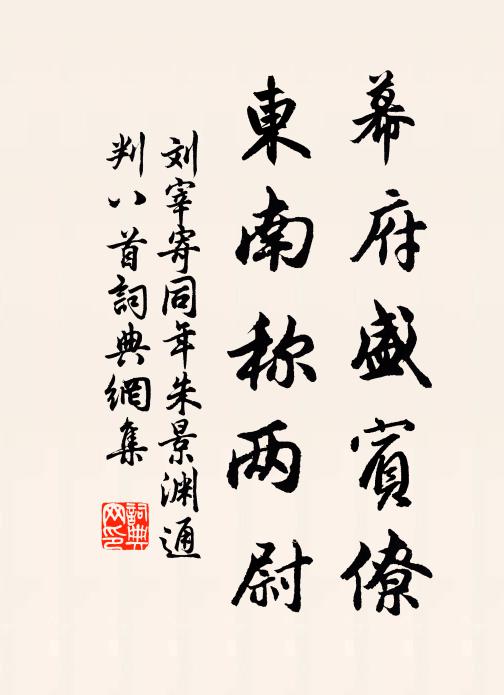 幕府盛賓僚
東南称两尉
刘宰寄同年朱景渊通
判八首詞典網集
詞典网印